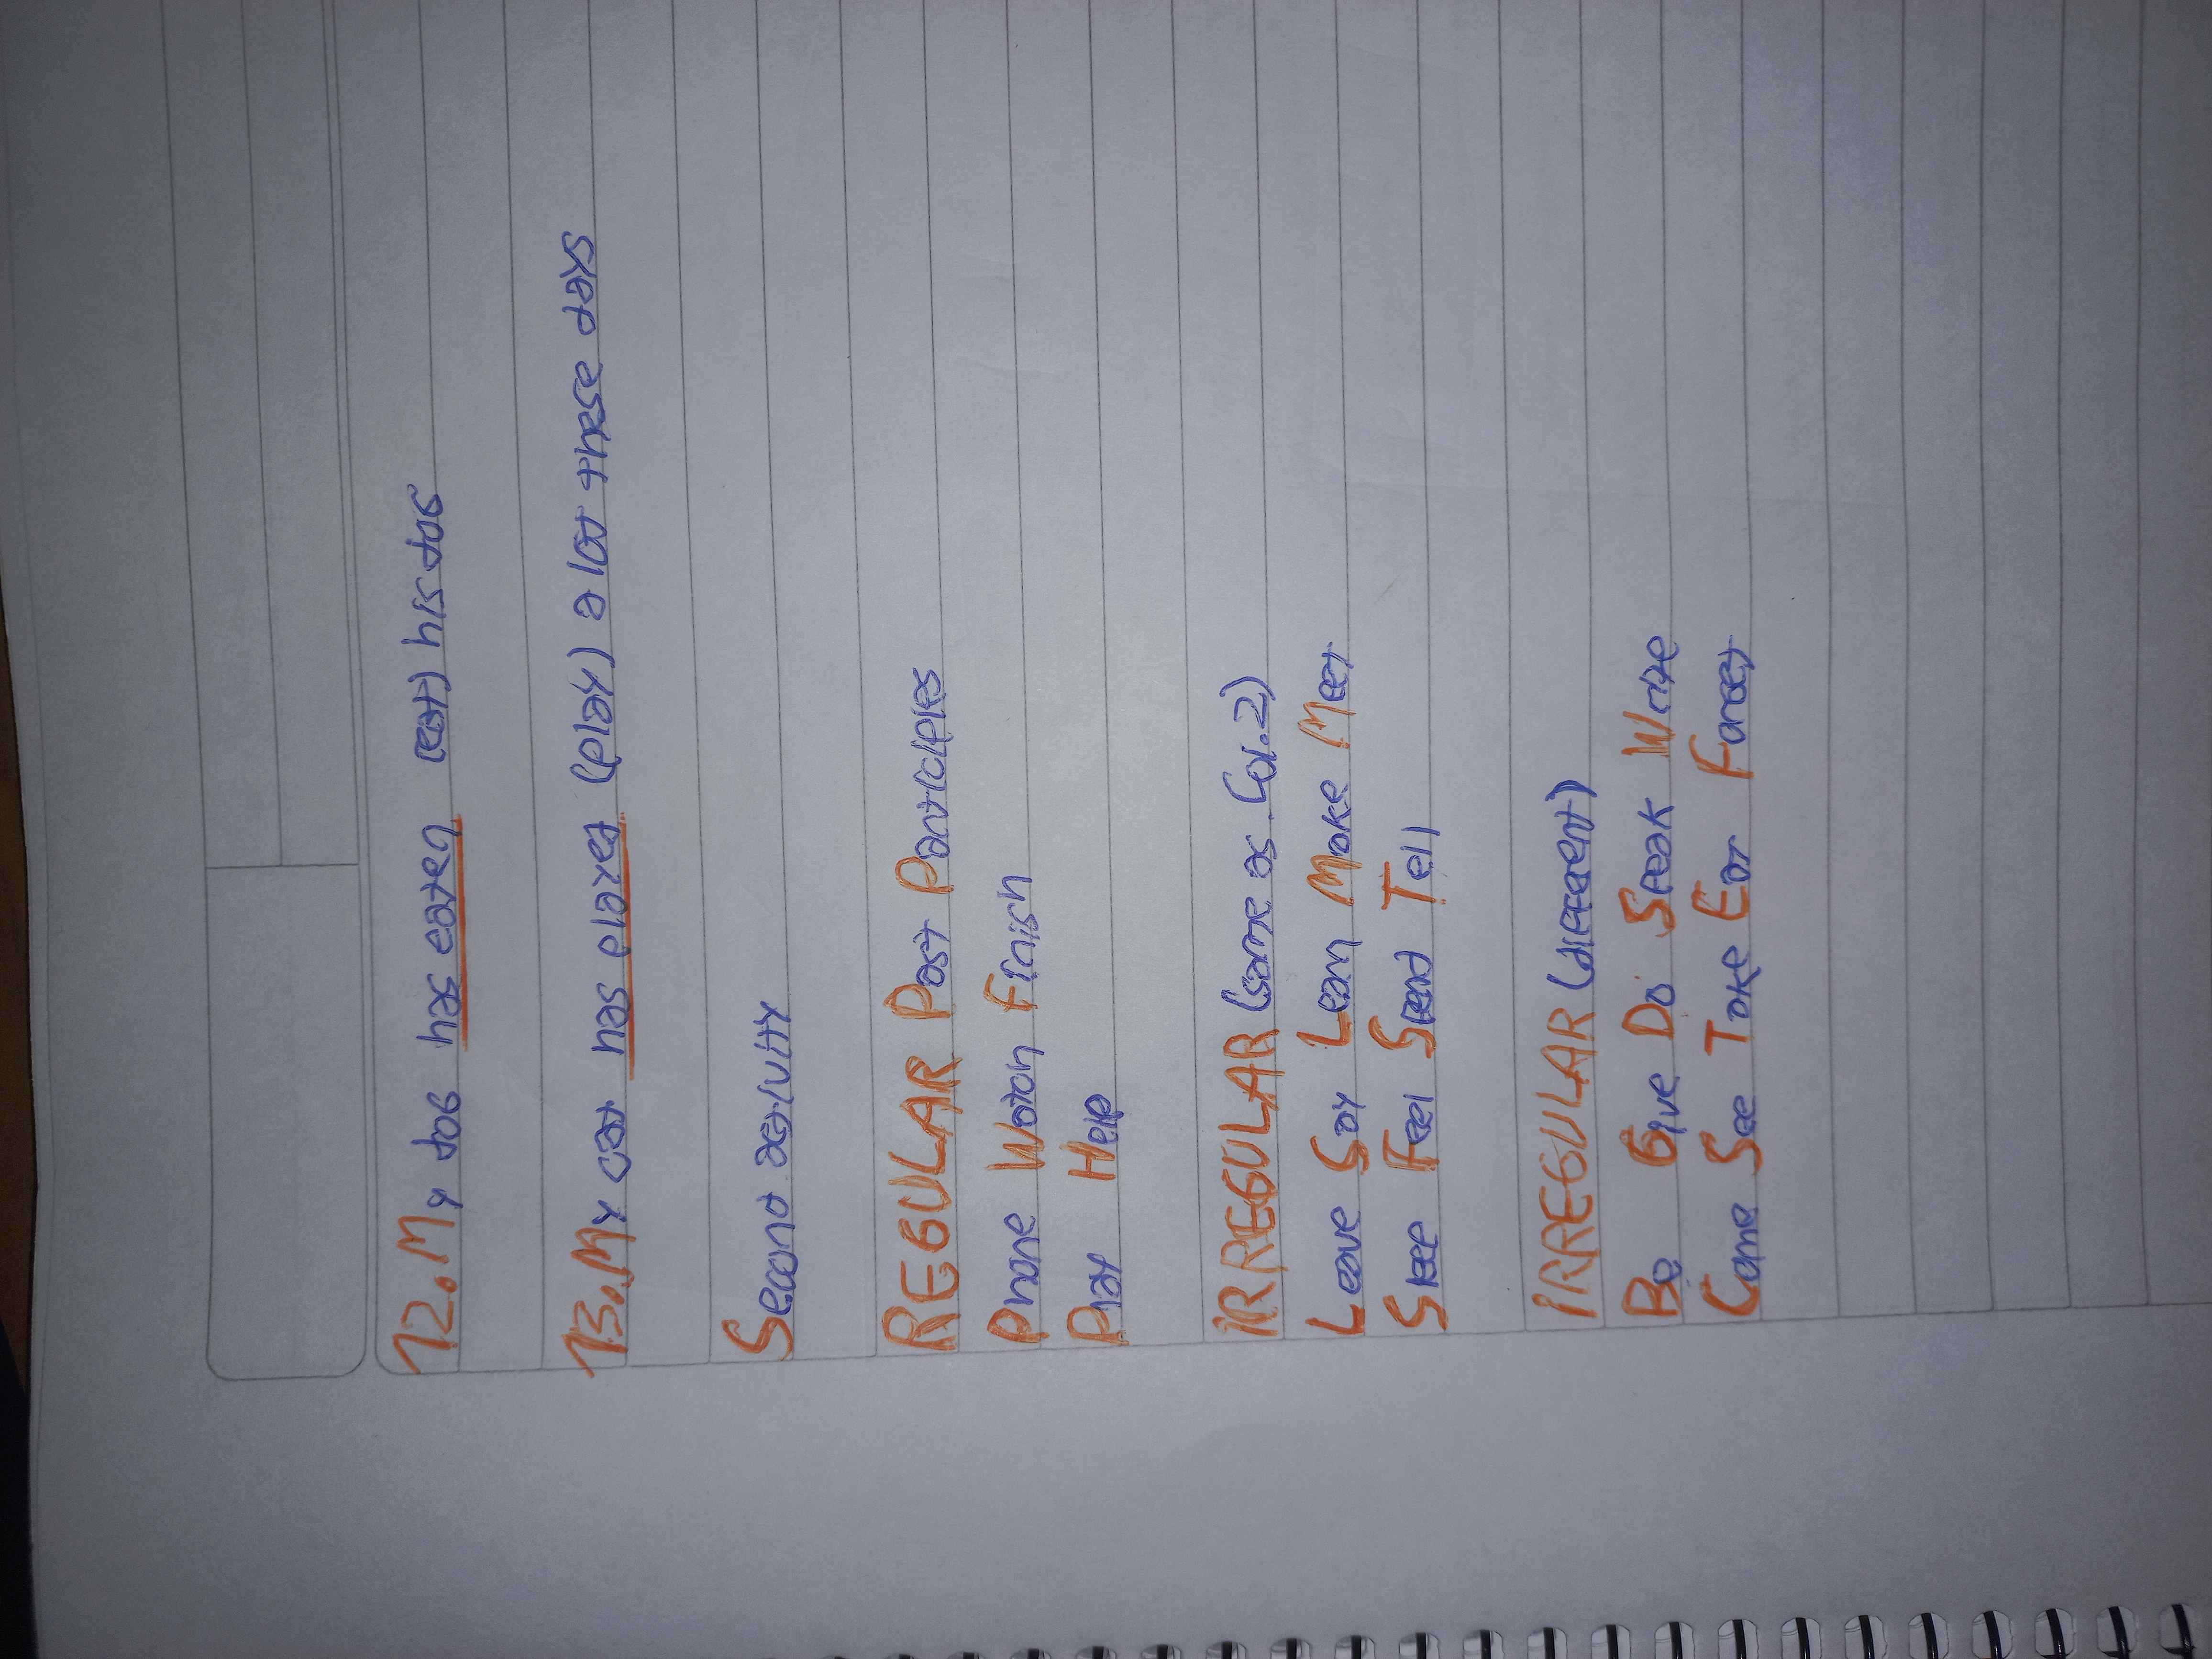 12. My dog has eated (eat) his dog
13. My cat has played (play) a lot these days
Second activity
REGULAR Past Participles
Phone Watch Finish
Play Help
IRREGULAR (same as Col.2)
Leave Say Learn Make Meet
Sleep Feel Spend Tell
IRREGULAR (different)
Be Give Do Speak Write
Come See Take Eat Forget